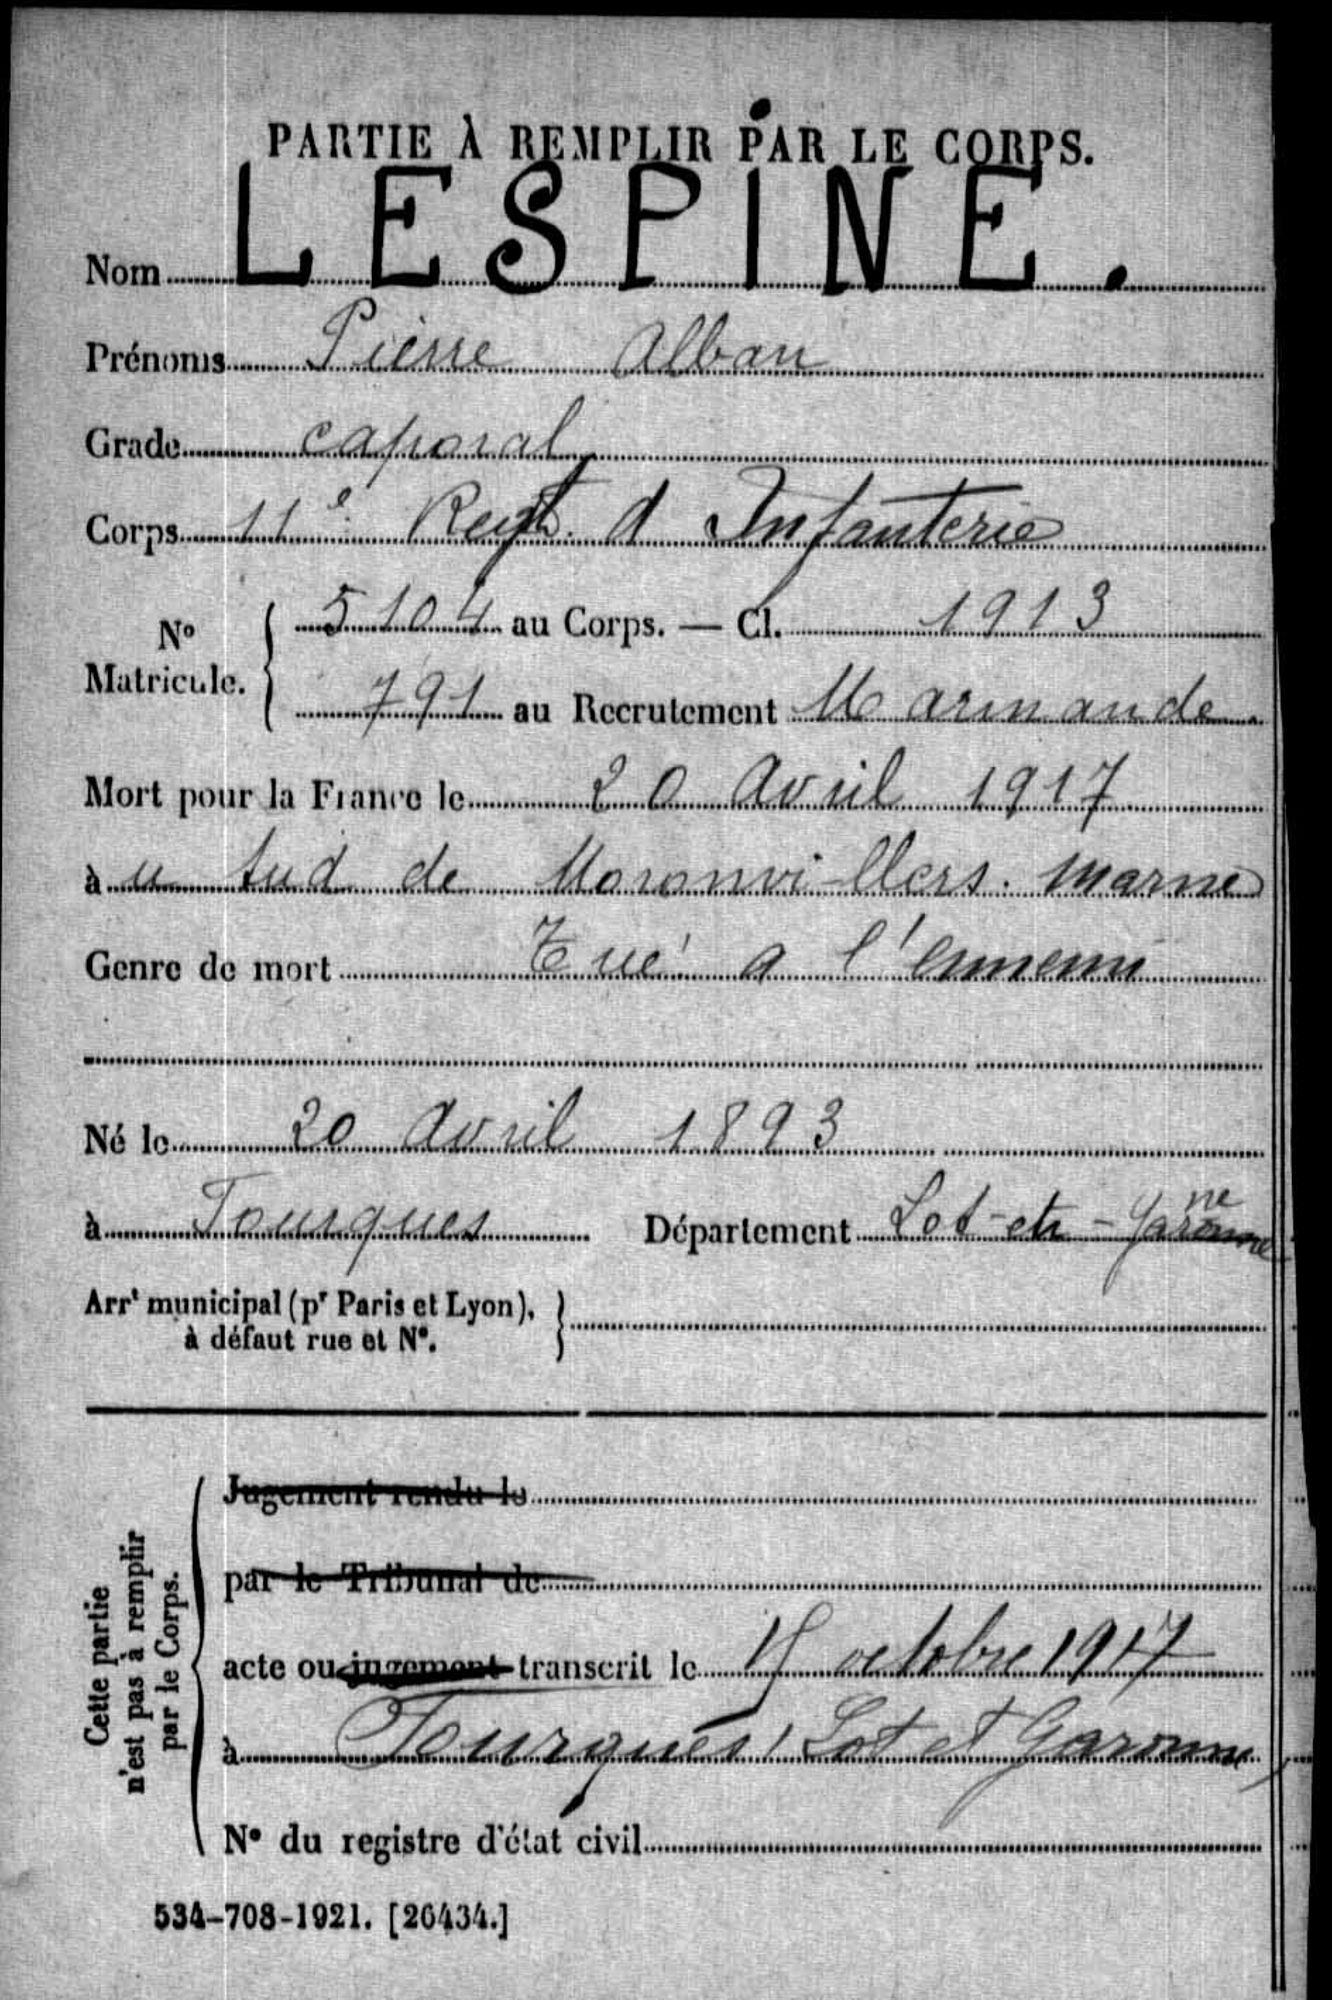 PARTIE À REMPLIR PAR LE CORPS.
Nom LESPINE.
Prénoms Pierre Alban
Grade caporal
Corps 11e Regt. d Infanterie
No Matricule. { 5104 au Corps. — Cl. 1913
791 au Recrutement Marmande.
Mort pour la France le 20 Avril 1917
à u Sud de Moronvi-llers. Marne
Genre de mort Tué a l'ennemi
Né le 20 Avril 1893
à Fourques Département Lot-et-Garonne
Arrt municipal (pr Paris et Lyon),
à défaut rue et No.
Cette partie n'est pas à remplir par le Corps.
Jugement rendu le
par le Tribunal de
acte ou jugement transcrit le octobre 1917
à Fourques / Lot et Garonne
No du registre d'état civil
534-708-1921. [26434.]